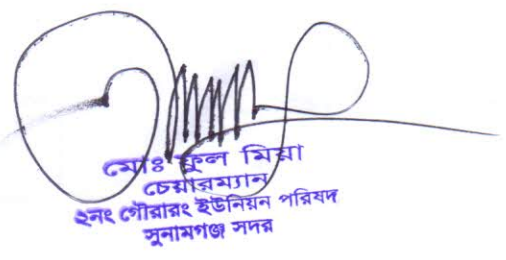 মোঃ ফুল মিয়া
চেয়ারম্যান
২নং গৌরারং ইউনিয়ন পরিষদ
সুনামগঞ্জ সদর